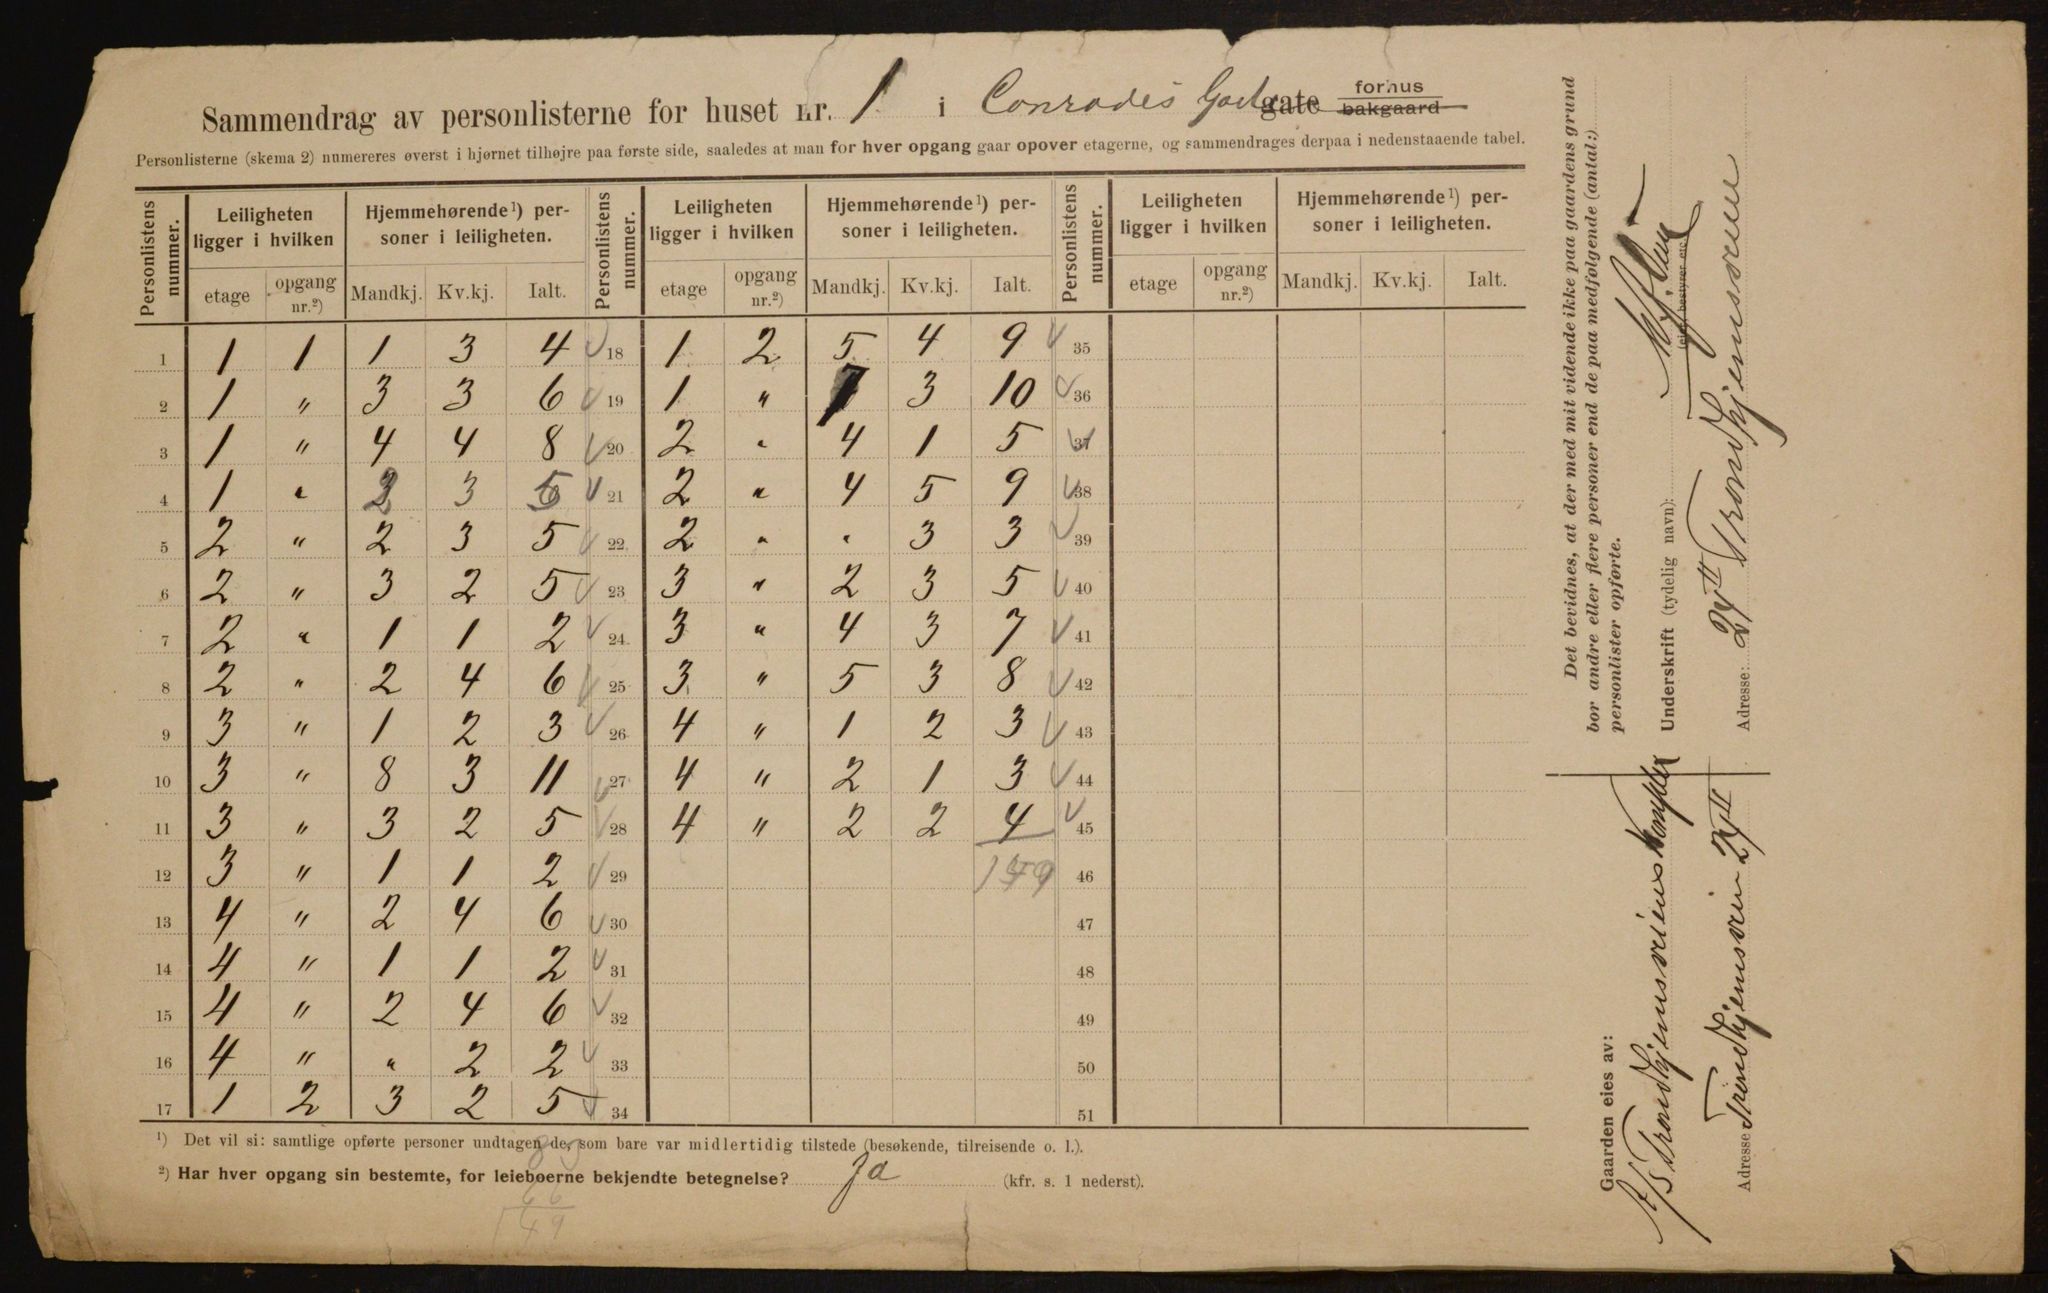 Sammendrag av personlisterne for huset nr. 1 i Conrades Gade gate forhus bakgaard
Personlisterne (skema 2) numereres øverst i hjørnet tilhøjre paa første side, saaledes at man for hver opgang gaar opover etagerne, og sammendrages derpaa i nedenstaaende tabel.
Personlistens nummer. Leiligheten ligger i hvilken Hjemmehørende¹) personer i leiligheten. Personlistens nummer. Leiligheten ligger i hvilken Hjemmehørende¹) personer i leiligheten. Personlistens nummer. Leiligheten ligger i hvilken Hjemmehørende¹) personer i leiligheten.
etage opgang nr.²) Mandkj. Kv.kj. Ialt. etage opgang nr.²) Mandkj. Kv.kj. Ialt. etage opgang nr.²) Mandkj. Kv.kj. Ialt.
1 1 1 1 3 4 18 1 2 5 4 9 35
2 1 " 3 3 6 19 1 " 7 3 10 36
3 1 " 4 4 8 20 2 " 4 1 5 37
4 1 " 2 3 5 21 2 " 4 5 9 38
5 2 " 2 3 5 22 2 " " 3 3 39
6 2 " 3 2 5 23 3 " 2 3 5 40
7 2 " 1 1 2 24 3 " 4 3 7 41
8 2 " 2 4 6 25 3 " 5 3 8 42
9 3 " 1 2 3 26 4 " 1 2 3 43
10 3 " 8 3 11 27 4 " 2 1 3 44
11 3 " 3 2 5 28 4 " 2 2 4 45
12 3 " 1 1 2 29 149 46
13 4 " 2 4 6 30 47
14 4 " 1 1 2 31 48
15 4 " 2 4 6 32 49
16 4 " " 2 2 33 50
17 1 2 3 2 5 34 51
¹) Det vil si: samtlige opførte personer undtagen de, som bare var midlertidig tilstede (besøkende, tilreisende o. l.).
83
²) Har hver opgang sin bestemte, for leieboerne bekjendte betegnelse? Ja (kfr. s. 1 nederst).
66
149
Det bevidnes, at der med mit vidende ikke paa gaardens grund
bor andre eller flere personer end de paa medfølgende (antal:)
personlister opførte.
Underskrift (tydelig navn):
(eier, bestyrer etc.)
Adresse: 2yII Trondhjemsveien
Gaarden eies av:
A/S Trondhjemsveiens Komplex
Adresse Trondhjemsvein 2yII